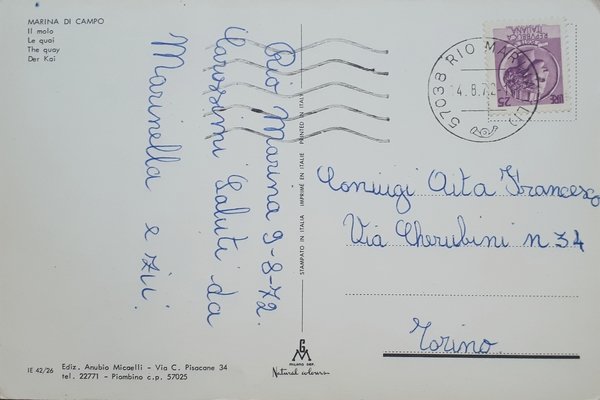 MARINA DI CAMPO
Il molo
Le quai
The quay
Der Kai
Rio Marina 9-8-72.
Carossimi Saluti da
Marinella e zii.
STAMPATO IN ITALIA IMPRIMÉ EN ITALIE PRINTED IN ITALY
57038 RIO MARINA
14.8.72
REPVBBLICA
ITALIANA
25
Coniugi Aita Francesco
Via Cherubini n 34
Torino
GM
MILANO DEP.
Natural colours
IE 42/26
Ediz. Anubio Micaelli - Via C. Pisacane 34
tel. 22771 - Piombino c.p. 57025